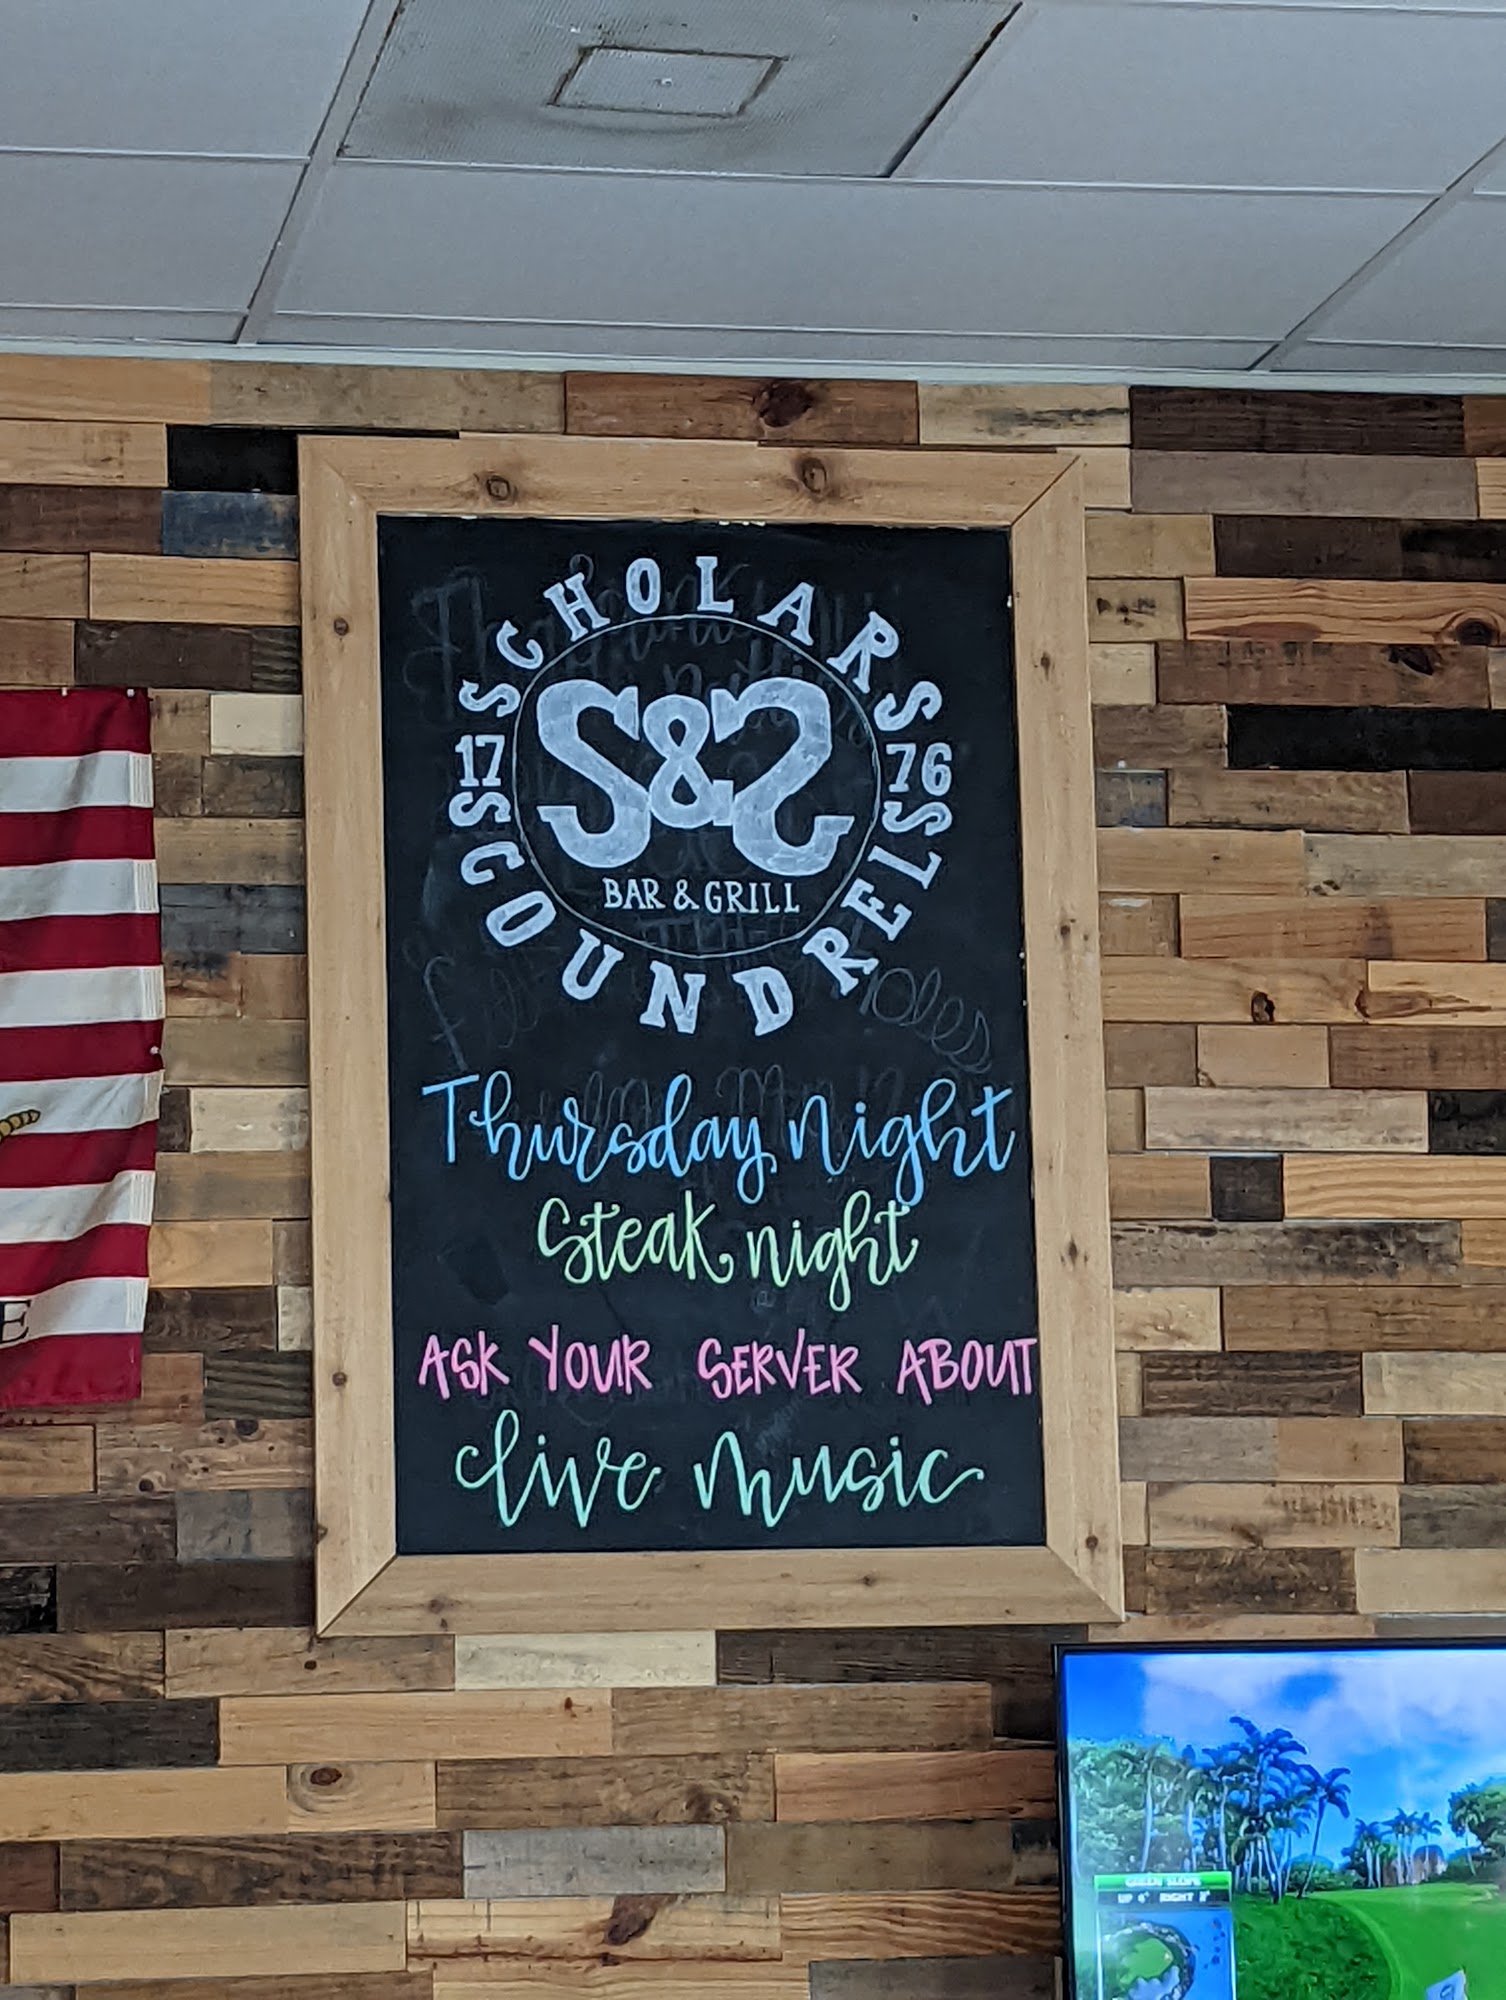 SCHOLARS
17 76
S&S
BAR & GRILL
SCOUNDRELS
Thursday night
Steak night
ASK YOUR SERVER ABOUT
live music
E
GREEN SLOPE